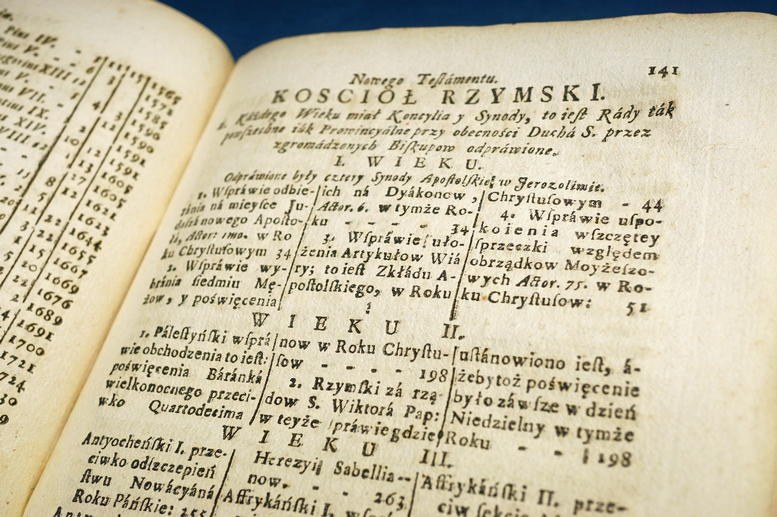 1565
1572
1585
1590
1590
1591
1644
1655
1667
1669
1676
1689
1691
1700
1721
724
Nowego Teſtámentu.
141
KOSCIÓŁ RZYMSKI.
Káżdego Wieku miał Koncylia y Synody, to ieſt Rády ták
powſzechne iák Prowincyálne przy obecności Duchá S. przez
zgromádzonych Biſkupow odpráwione.
I. WIEKU.
Odpráwione były cztery Synody Apoſtolſkie w Jerozolimie.
1. Wſpráwie odbie-
ránia ná mieyſce Ju-
daſzá nowego Apoſto-
łá, Actor: 1mo. w Ro
ku Chryſtuſowym 34
2. Wſpráwie wy-
bránia ſiedmiu Mę-
żow, y poświęcenia
ich ná Dyákonow,
Actor. 6. w tymże Ro-
ku - - - 34
3. Wſpráwie uło-
żenia Artykułow Wiá
ry; to ieſt Zkłádu A-
poſtolſkiego, w Roku
Chryſtuſowym - 44
4. Wſpráwie uſpo-
koienia wſzczętey
ſprzeczki względem
obrządkow Moyżeſzo-
wych Actor. 75. w Ro-
ku Chryſtuſow: 51
WIEKU II.
1. Páleſtyńſki wſprá
wie obchodzenia to ieſt:
poświęcenia Báránká
wielkonocnego przeci-
wko Quartodecima
now w Roku Chryſtu-
ſow - - - - 198
2. Rzymſki zá rzą-
dow S. Wiktorá Pap:
w teyże ſpráwie gdzie
uſtánowiono ieſt, á-
żeby toż poświęcenie
było záwſze w dzień
Niedzielny w tymże
Roku - - 198
WIEKU III.
Antyocheńſki I. prze-
ciwko odſzczepień
ſtwu Nowácyáná
Roku Páńſkie: 255
Herezyi Sabellia--
now. - - - 263
Affrykáńſki I. wſprá
Affrykáńſki II. prze-